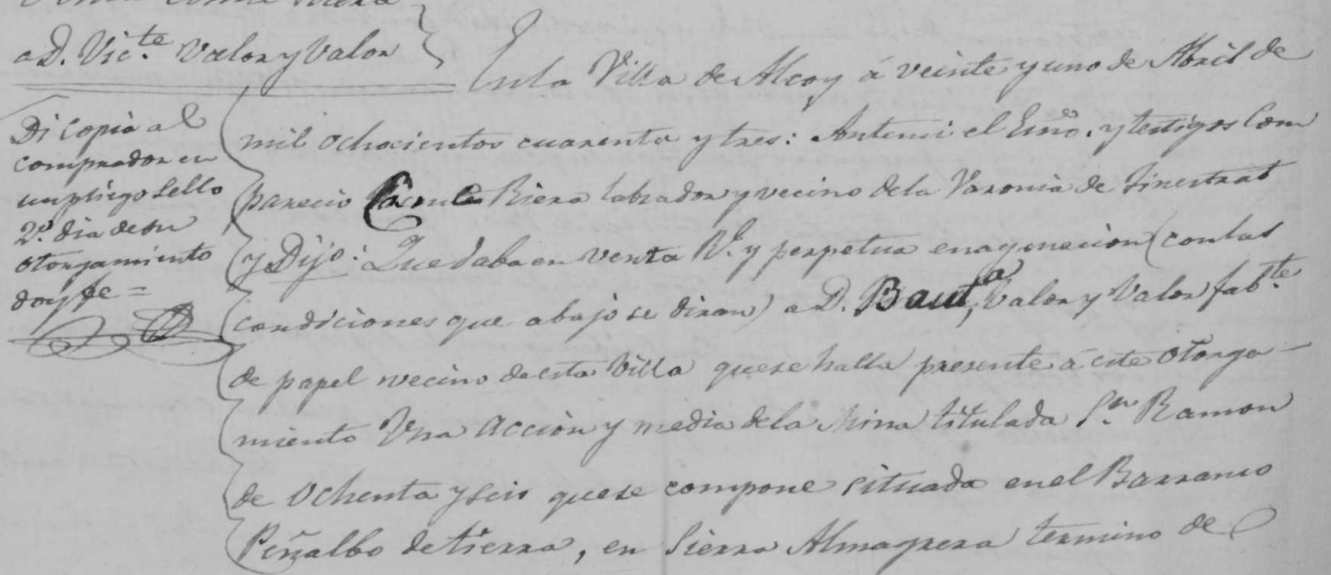 a D. Vic.te Valor y Valor
Di copia al
comprador en
un pliego Sello
2.º dia de su
otorgamiento
doy fe =
En la Villa de Alcoy á veinte y uno de Abril de
mil ochocientos cuarenta y tres: Antemi el Esno. y testigos Com
parecio Riera labrador y vecino de la Varonia de Finestrat
y Dijo: Que daba en venta Rl. y perpetua enagenacion (con las
condiciones que abajo se diran) a D. Bauta. Valor y Valor fabte.
de papel vecino de esta Villa que se halla presente á este otorga-
miento Una Accion y media de la Mina titulada Sn. Ramon
de Ochenta y seis que se compone situada en el Barranco
Peñalbo de tierra, en Sierra Almagrera termino de